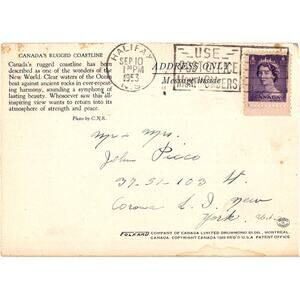 CANADA'S RUGGED COASTLINE
Canada's rugged coastline has been
described as one of the wonders of the
New World. Clear waters of the Ocean
beat against ancient rocks in ever-repeat-
ing harmony, sounding a symphony of
lasting beauty. Whosoever saw this all-
inspiring view wants to return into its
atmosphere of strength and peace.
Photo by C.N.R.
HALIFAX
SEP 10
1 30 PM
1953
N.S.
USE
POST OFFICE
MONEY ORDERS
ADDRESS ONLY
Message inside
CANADA
Mr + Mrs.
John Picco
37-51-103 St
Corona L. I. New
York. U.S.A.
FOLKARD COMPANY OF CANADA LIMITED DRUMMOND BLDG., MONTREAL,
CANADA. COPYRIGHT CANADA 1952 REG'D U.S.A PATENT OFFICE